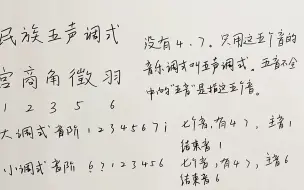 民族五声调式
宫商角徵羽
1 2 3 5 6
没有4、7。只用这五个音的
音乐调式叫五声调式。五音不全
中的“五音”是指这五个音。
大调式音阶 1 2 3 4 5 6 7 i
七个音,有4 7,主音1
结束音1
小调式音阶 6 7 1 2 3 4 5 6
七个音,有4 7,主音6
结束音6